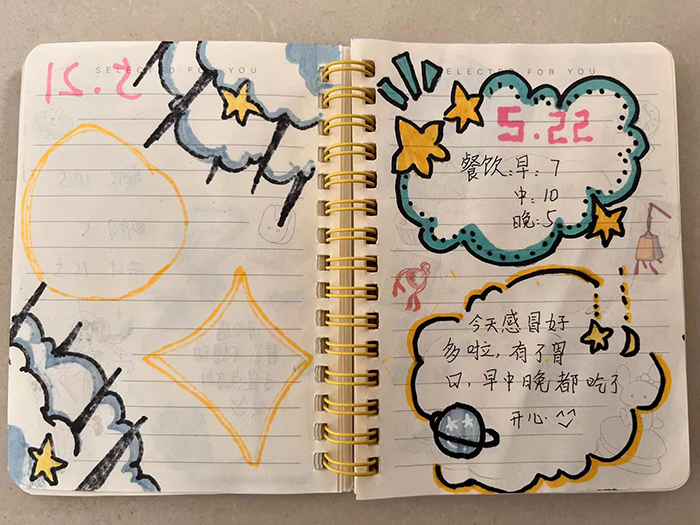 SELECTED FOR YOU
5.21
SELECTED FOR YOU
5.22
餐饮:早:7
中:10
晚:5
今天感冒好
多啦,有了胃
口,早中晚都吃了
开心 ^^